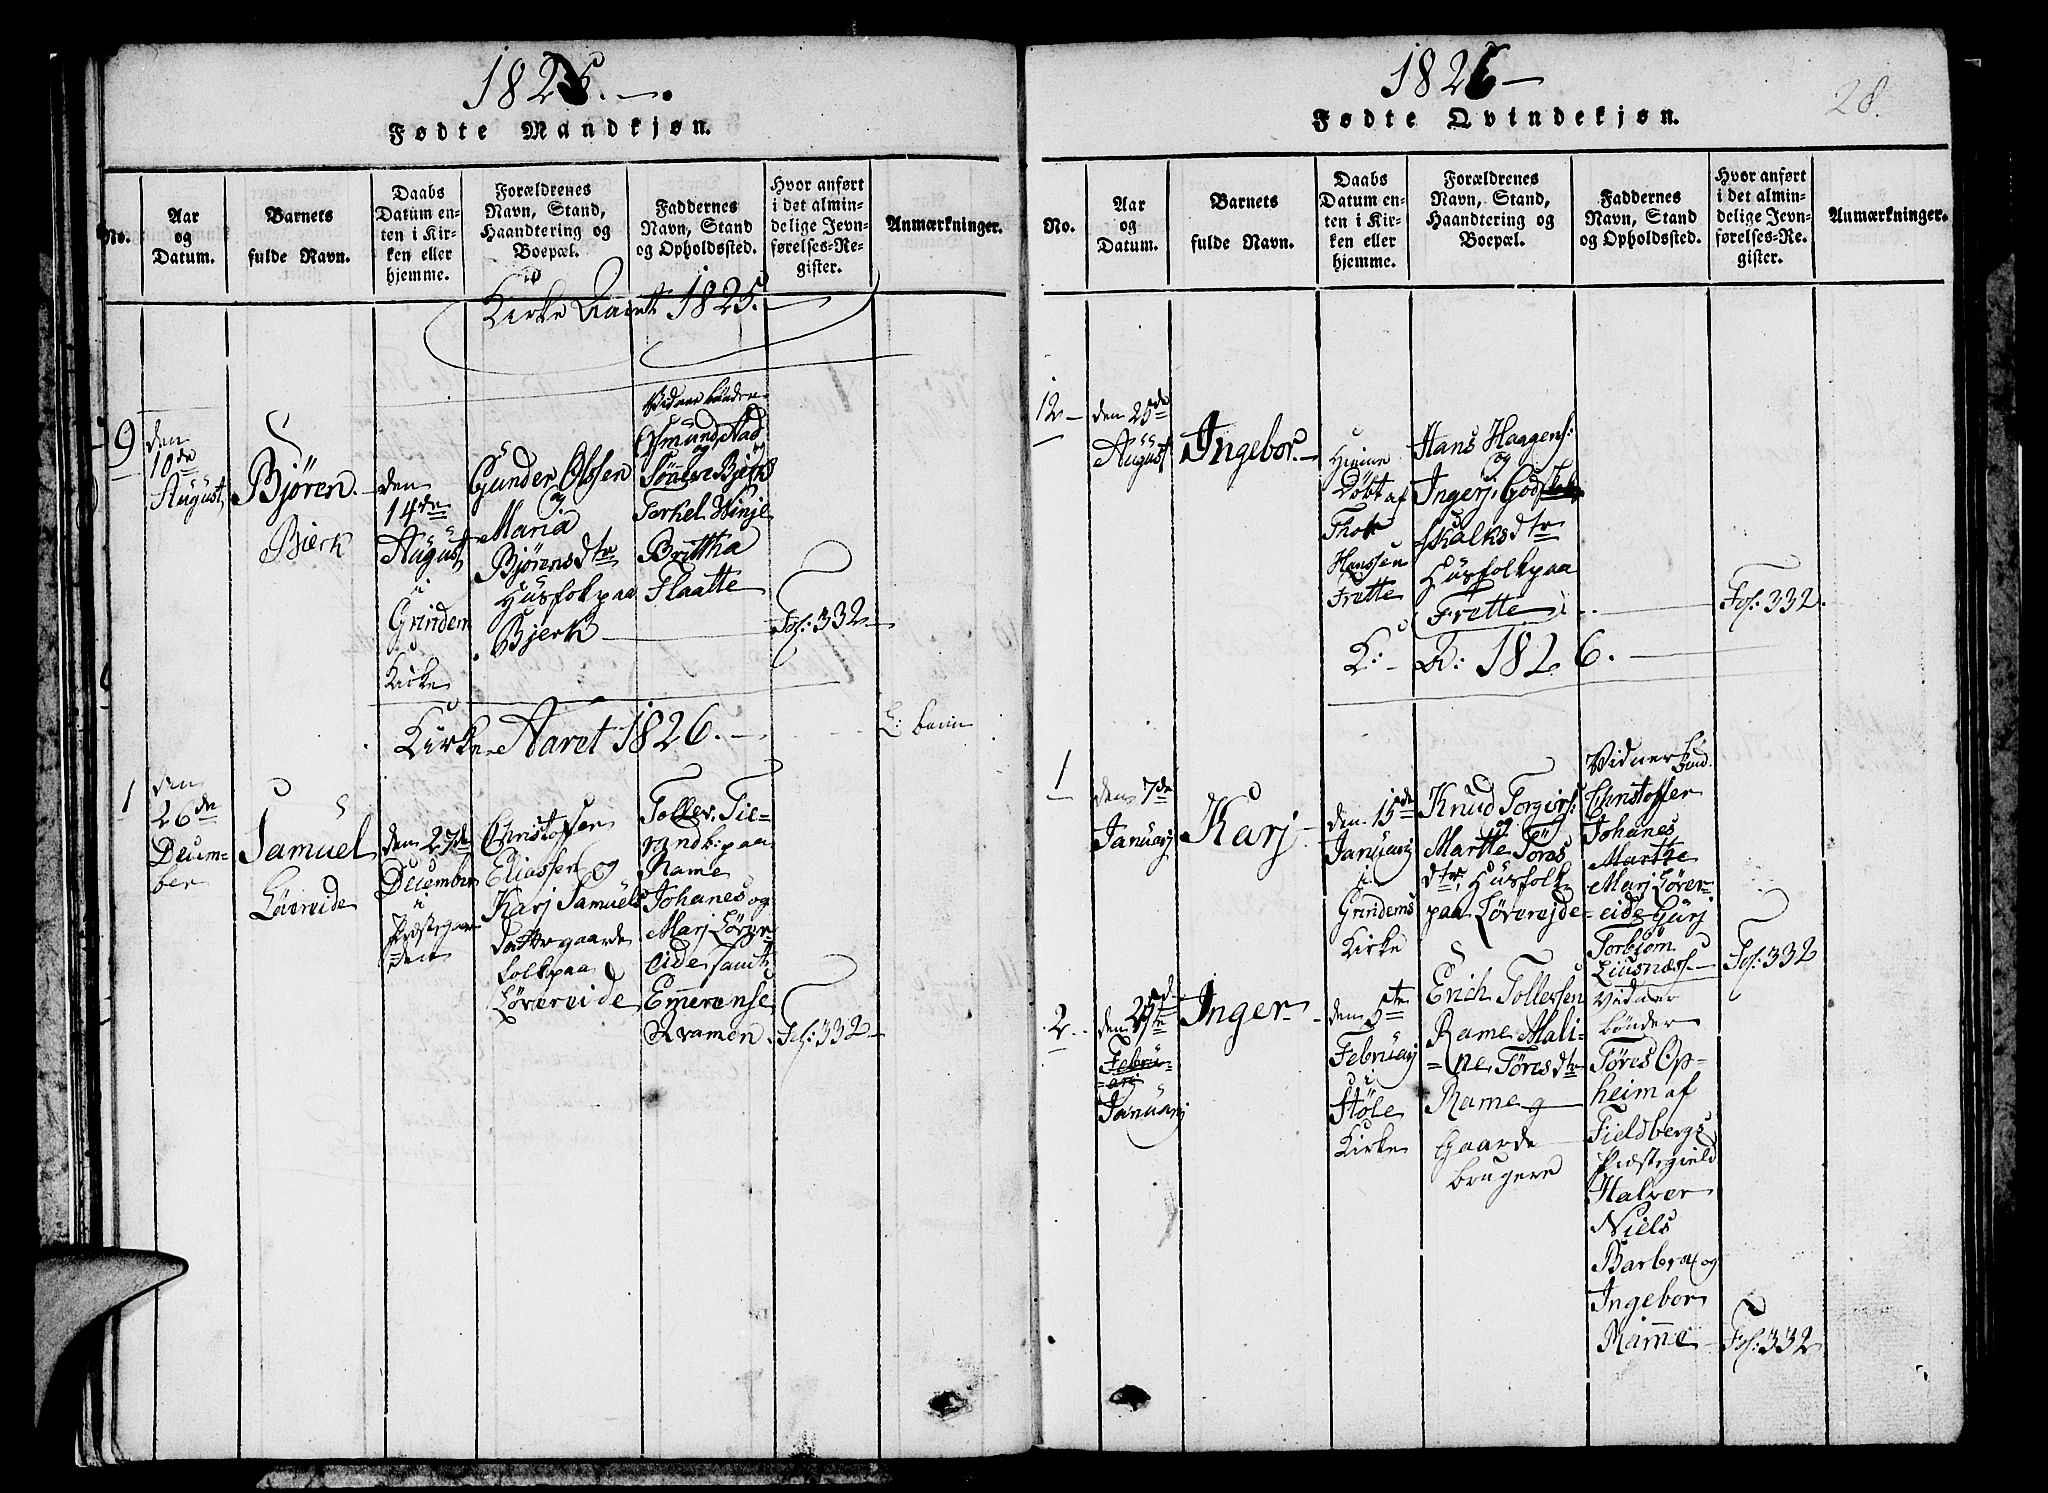 1825.
Fødte Mandkjøn.
No.
Aar
og
Datum.
Barnets
fulde Navn.
Daabs
Datum en-
ten i Kir-
ken eller
hjemme.
Forældrenes
Navn, Stand,
Haandtering og
Boepæl.
Faddernes
Navn, Stand
og Opholdssted.
Hvor anført
i det almin-
delige Jevn-
førelses-Re-
gister.
Anmærkninger.
Kirke Aaret 1825.
9
den
10de
August
Bjøren
Bierk
den
14de
August
i
Grindem
Kirke
Gunder Olssen
og
Maria
Bjørensdtr
Husfolk paa
Bjerk
Vidner bønder
Osmund Aad
og
Bjerk
Torkel Winje
Brittha
Flaatte
Fol: 332
Kirke Aaret 1826.
1
den
26de
Decem-
ber
Samuel
Løvereide
den 27de
December
i
Præstegaar-
den
Christoffer
Eliassen og
Karj Samuels
Datter gaarde
folk paa
Løvereide
Tollev Tie-
randb: paa
Rame
Johanes og
Marj Løver-
eide samt
Emerense
Qvamen
Fol: 332
1826
28.
Fødte Qvindekjøn.
No.
Aar
og
Datum.
Barnets
fulde Navn.
Daabs
Datum en-
ten i Kir-
ken eller
hjemme.
Forældrenes
Navn, Stand,
Haandtering og
Boepæl.
Faddernes
Navn, Stand
og Opholdssted.
Hvor anført
i det almin-
delige Jevn-
førelses-Re-
gister.
Anmærkninger.
12
den 25de
August
Ingebor
Hieme
Døbt af
Thor
Hanssen
Frette
Hans Haagens:
og
Ingerj God
skalksdtr
Husfolk paa
Frette
Fol: 332
K: A: 1826.
1
den 7de
Januarj
Karj
den 15de
Januarj
i
Grindems
Kirke
Knud Torgiers:
og
Marthe Tøres
dtr, Husfolk
paa Løverejde
Vidner
Christoffer
Johanes
Marthe
Marj Løver-
eide Gurj
Torbjørn
Liusnæss
Fol: 332
2
den 25de
Febru-
arj
Januarj
Inger
den 5te
Februarj
i
Støle
Kirke
Erich Tollefsen
Rame Mali-
ne Tøresdtr
Rame
Gaarde
brugere
Vidner
bønder
Tøres Op-
heim af
Fieldbergs
Præstegield
Halvor
Niels
Barbra og
Ingebor
Ramme
Fol: 332